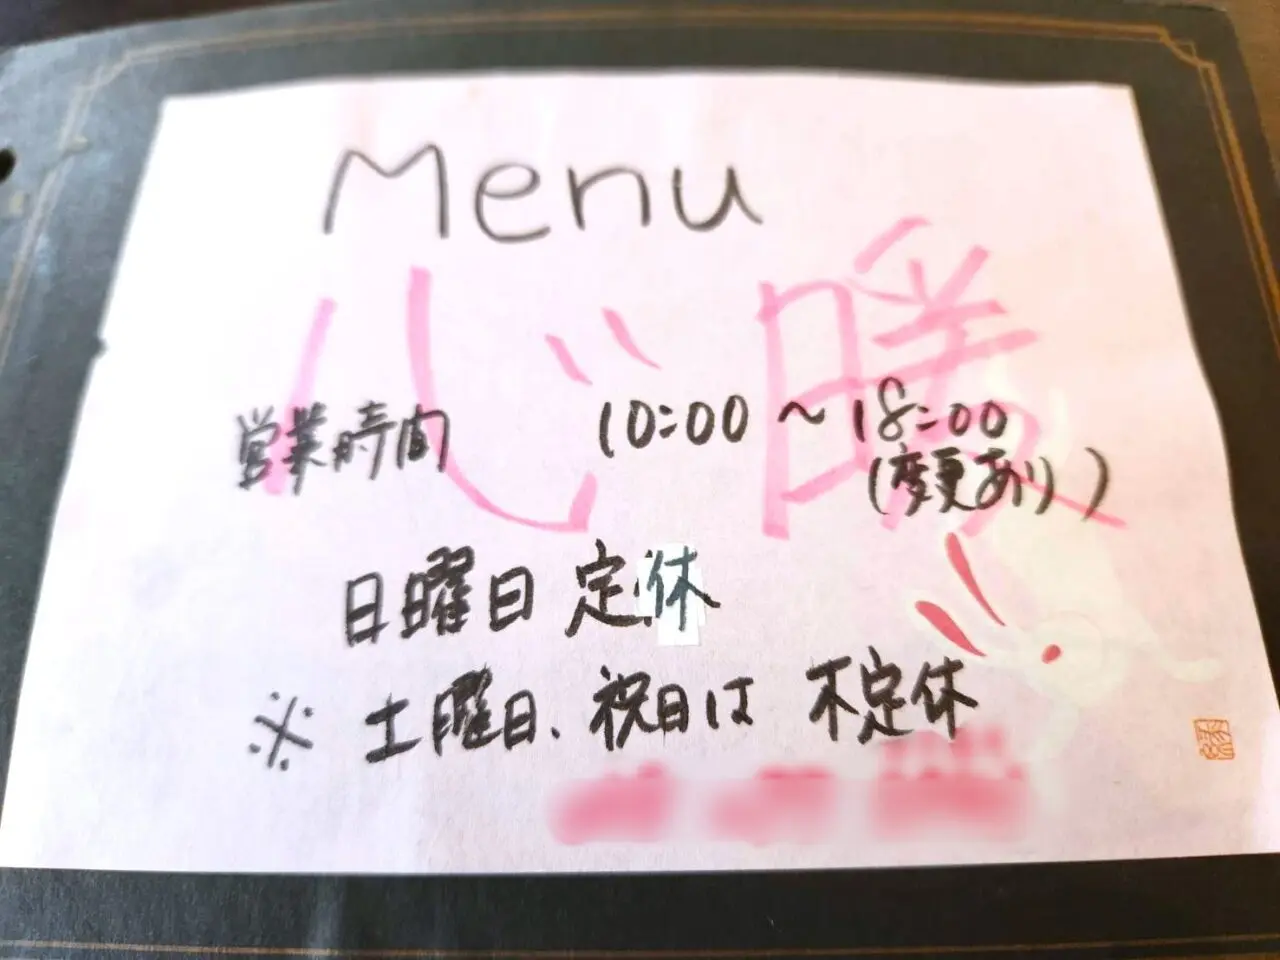 Menu
心暖
営業時間 10:00 ~ 18:00
(変更あり)
日曜日 定休
※ 土曜日、祝日は 不定休